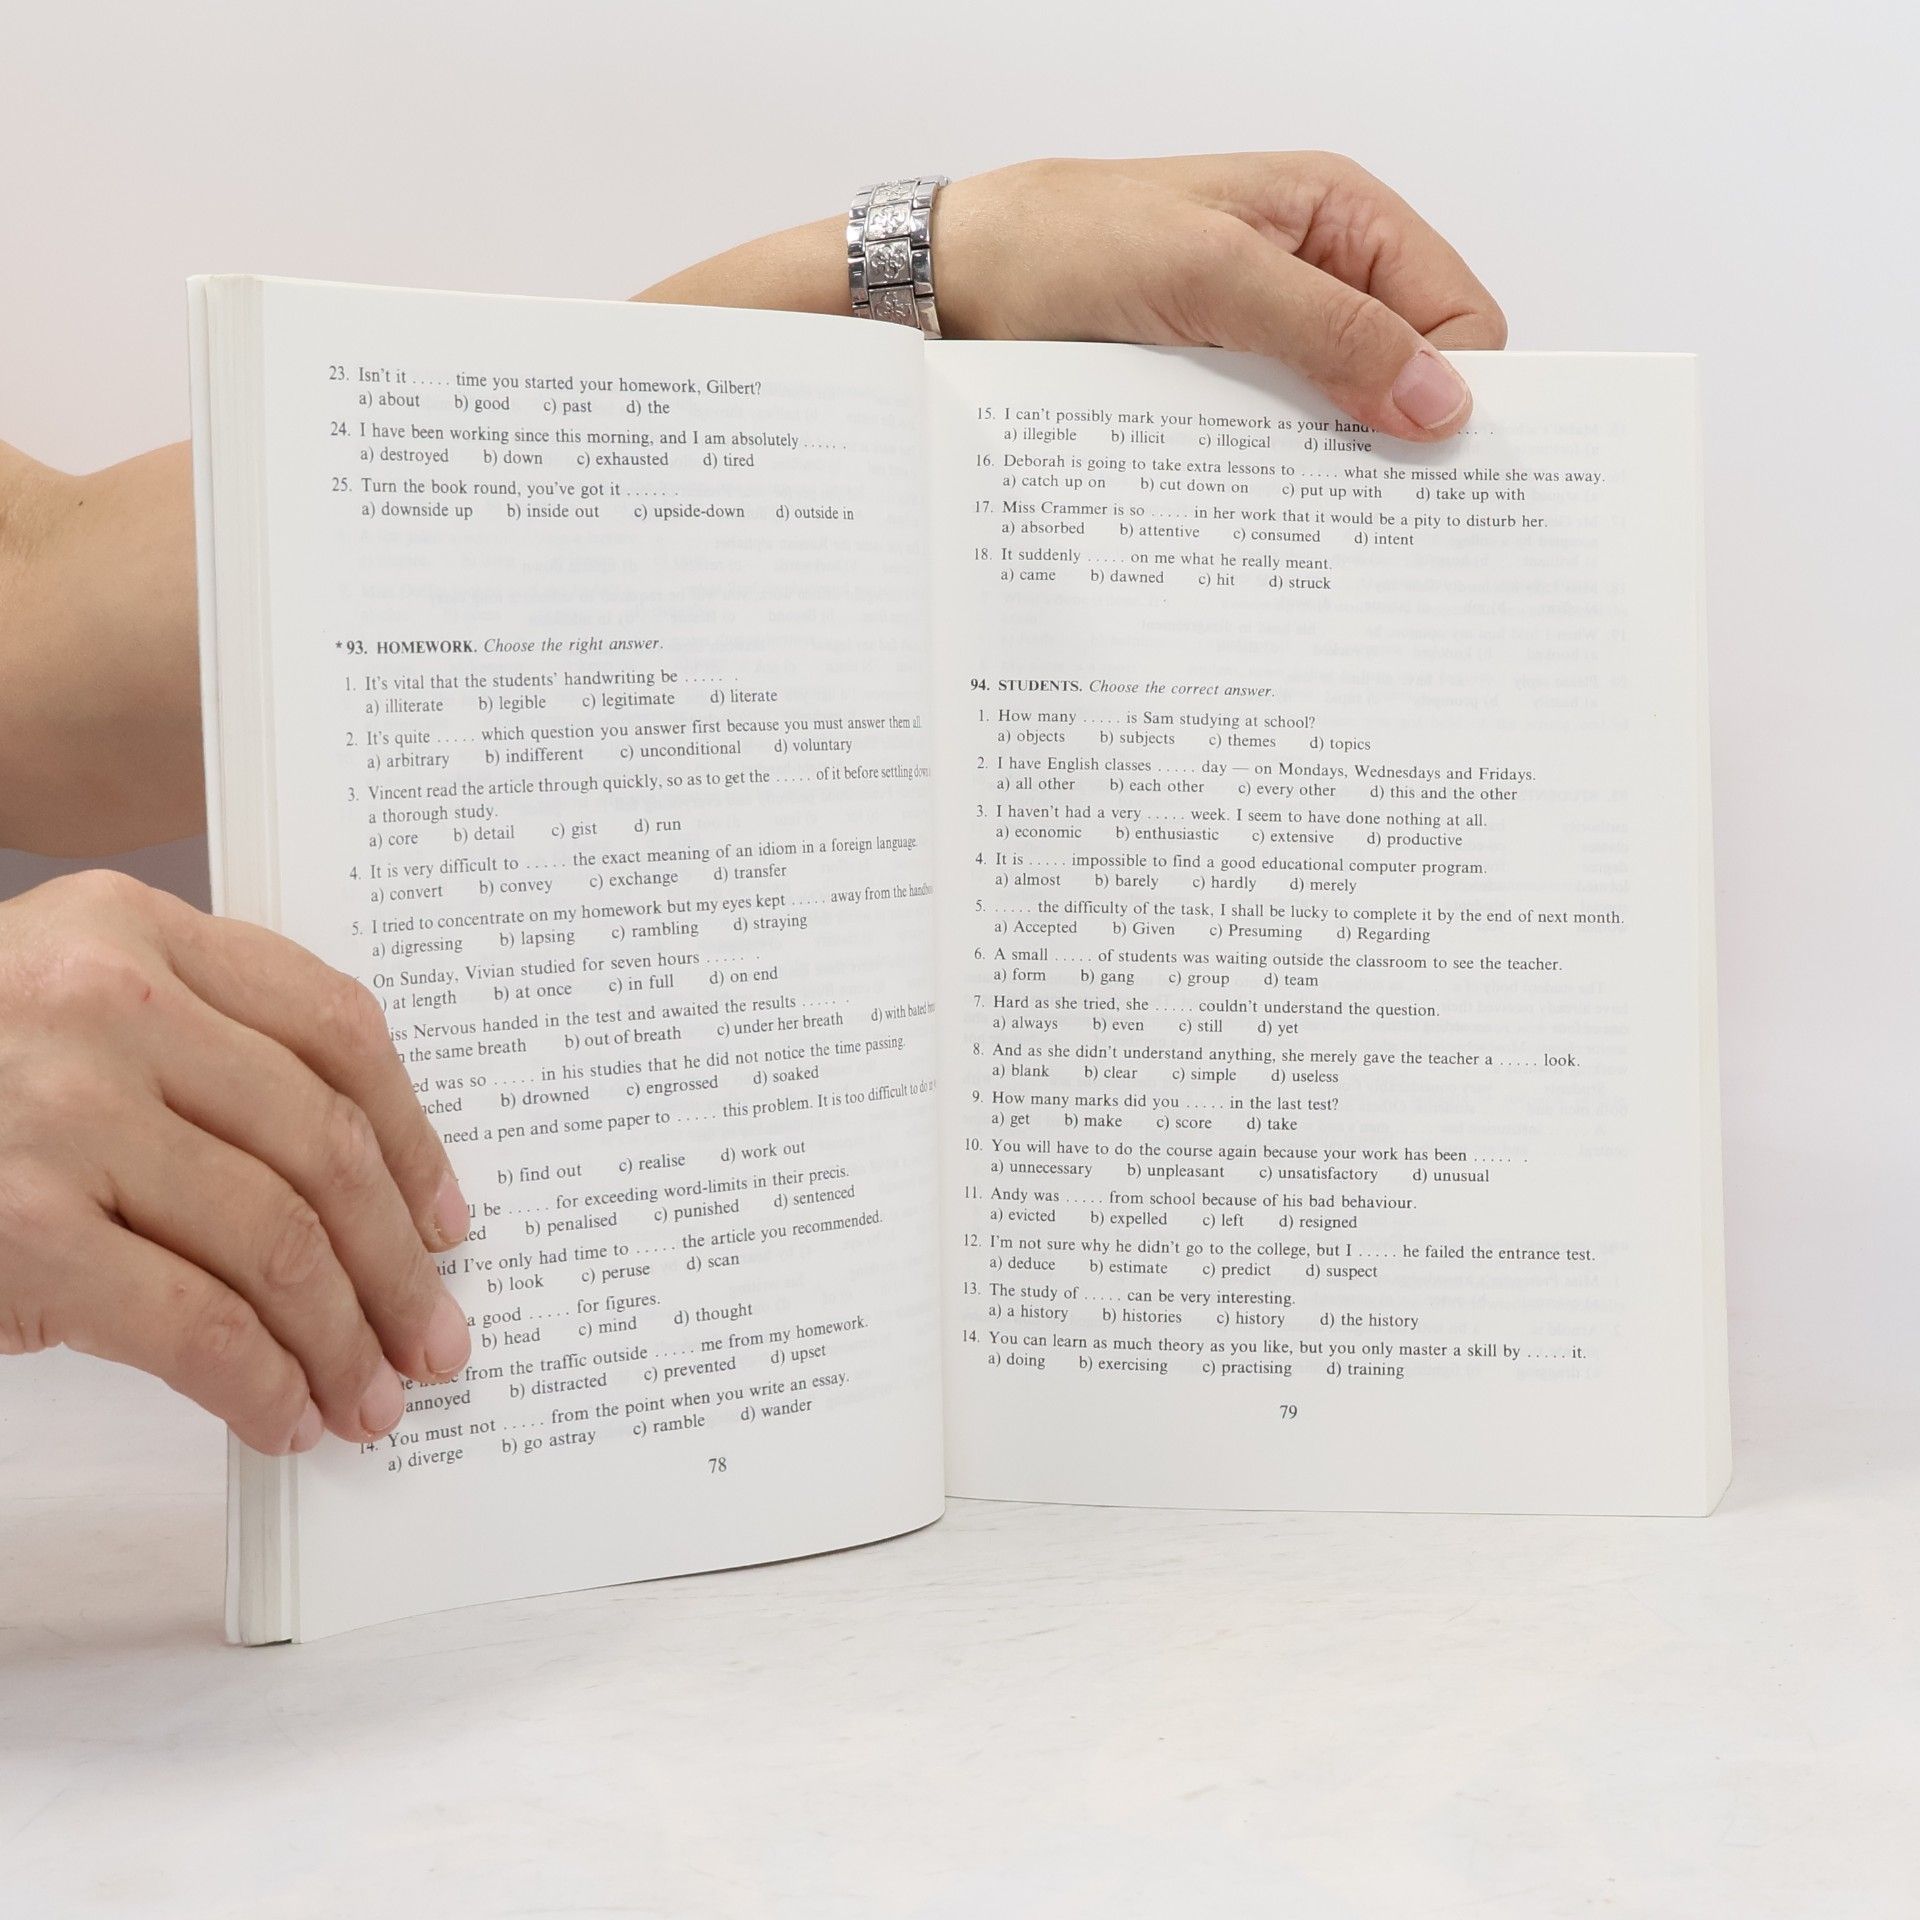 23. Isn't it ..... time you started your homework, Gilbert?
a) about b) good c) past d) the
24. I have been working since this morning, and I am absolutely ......
a) destroyed b) down c) exhausted d) tired
25. Turn the book round, you've got it ......
a) downside up b) inside out c) upside-down d) outside in
*93. HOMEWORK. Choose the right answer.
1. It's vital that the students' handwriting be ......
a) illiterate b) legible c) legitimate d) literate
2. It's quite ..... which question you answer first because you must answer them all
a) arbitrary b) indifferent c) unconditional d) voluntary
3. Vincent read the article through quickly, so as to get the ..... of it before settling down
a thorough study.
a) core b) detail c) gist d) run
4. It is very difficult to ..... the exact meaning of an idiom in a foreign language
a) convert b) convey c) exchange d) transfer
5. I tried to concentrate on my homework but my eyes kept ..... away from the
a) digressing b) lapsing c) rambling d) straying
On Sunday, Vivian studied for seven hours ......
at length b) at once c) in full d) on end
Nervous handed in the test and awaited the results ......
the same breath b) out of breath c) under her breath d) with bated
was so ..... in his studies that he did not notice the time passing.
b) drowned c) engrossed d) soaked
need a pen and some paper to ..... this problem. It is too difficult to do
b) find out c) realise d) work out
be ..... for exceeding word-limits in their precis.
b) penalised c) punished d) sentenced
I've only had time to ..... the article you recommended.
b) look c) peruse d) scan
a good ..... for figures.
b) head c) mind d) thought
from the traffic outside ..... me from my homework.
annoyed b) distracted c) prevented d) upset
14. You must not ..... from the point when you write an essay.
a) diverge b) go astray c) ramble d) wander
78
15. I can't possibly mark your homework as your
a) illegible b) illicit c) illogical d) illusive
16. Deborah is going to take extra lessons to ..... what she missed while she was away.
a) catch up on b) cut down on c) put up with d) take up with
17. Miss Crammer is so ..... in her work that it would be a pity to disturb her.
a) absorbed b) attentive c) consumed d) intent
18. It suddenly ..... on me what he really meant.
a) came b) dawned c) hit d) struck
94. STUDENTS. Choose the correct answer.
1. How many ..... is Sam studying at school?
a) objects b) subjects c) themes d) topics
2. I have English classes ..... day — on Mondays, Wednesdays and Fridays.
a) all other b) each other c) every other d) this and the other
3. I haven't had a very ..... week. I seem to have done nothing at all.
a) economic b) enthusiastic c) extensive d) productive
4. It is ..... impossible to find a good educational computer program.
a) almost b) barely c) hardly d) merely
5. ..... the difficulty of the task, I shall be lucky to complete it by the end of next month.
a) Accepted b) Given c) Presuming d) Regarding
6. A small ..... of students was waiting outside the classroom to see the teacher.
a) form b) gang c) group d) team
7. Hard as she tried, she ..... couldn't understand the question.
a) always b) even c) still d) yet
8. And as she didn't understand anything, she merely gave the teacher a ..... look.
a) blank b) clear c) simple d) useless
9. How many marks did you ..... in the last test?
a) get b) make c) score d) take
10. You will have to do the course again because your work has been ......
a) unnecessary b) unpleasant c) unsatisfactory d) unusual
11. Andy was ..... from school because of his bad behaviour.
a) evicted b) expelled c) left d) resigned
12. I'm not sure why he didn't go to the college, but I ..... he failed the entrance test.
a) deduce b) estimate c) predict d) suspect
13. The study of ..... can be very interesting.
a) a history b) histories c) history d) the history
14. You can learn as much theory as you like, but you only master a skill by ..... it.
a) doing b) exercising c) practising d) training
79